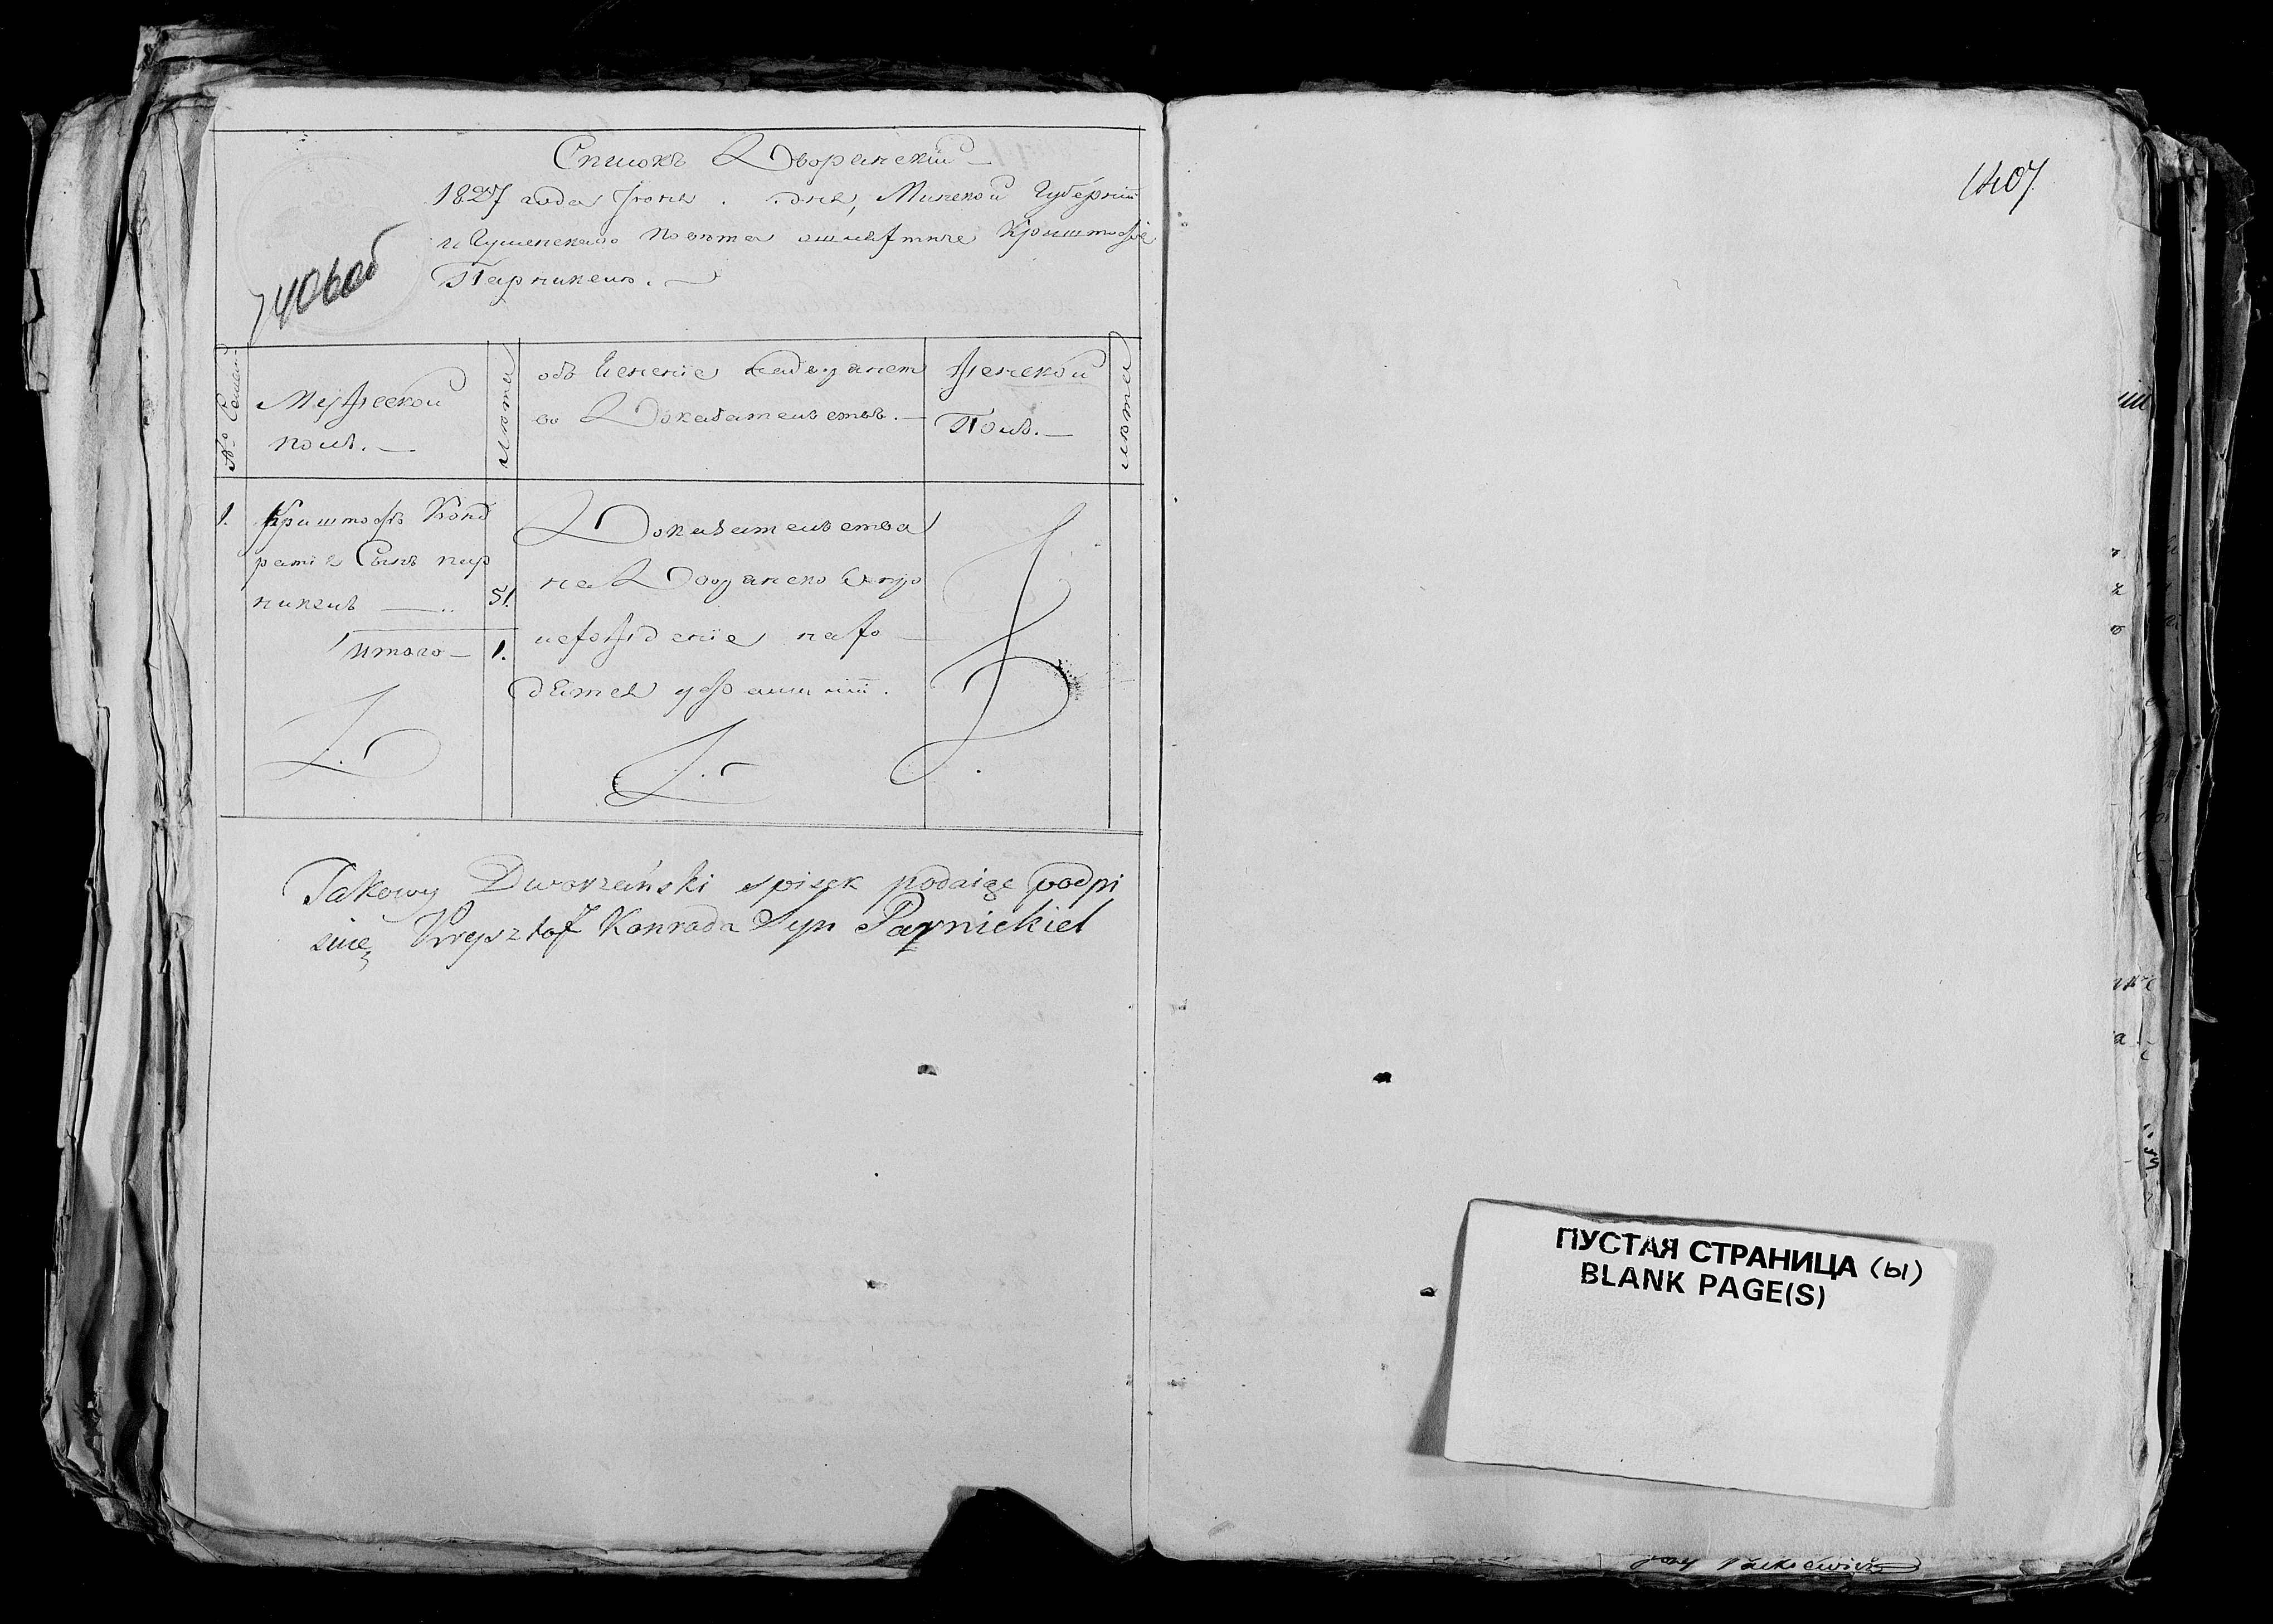 Списокъ Дворянскій
1827 года Июня дня, Минской Губерніи
Игуменскаго Повета о шляхтиче Криштофе
Парникелю.
1406 об
№ Семьи
Мужеской
полъ.
лета
объясненіе на дворянст
во Доказательствъ.
Женской
Полъ.
лета
1. Криштофъ Конд
ратія Сынъ пар
никель 51.
Итого 1.
Доказательства
на Дворянское Про
исхожденіе нахо
дятся у
Takowy Dworzański spisek podaige podpi
suię Krzysztof Konrada Syn Parnickiel
1407
ПУСТАЯ СТРАНИЦА (Ы)
BLANK PAGE(S)